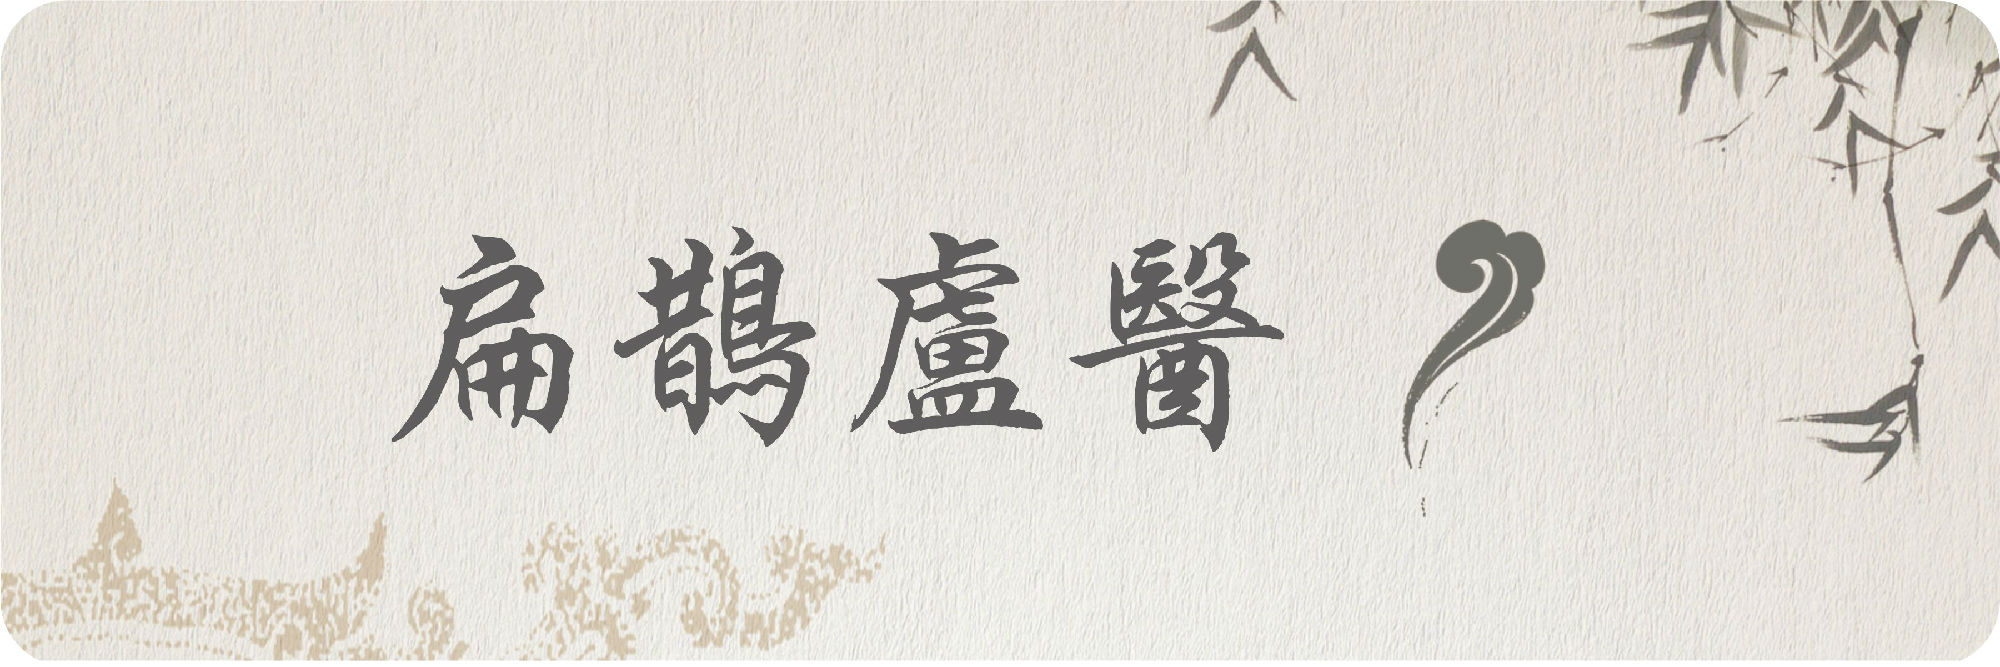 扁鵲盧醫